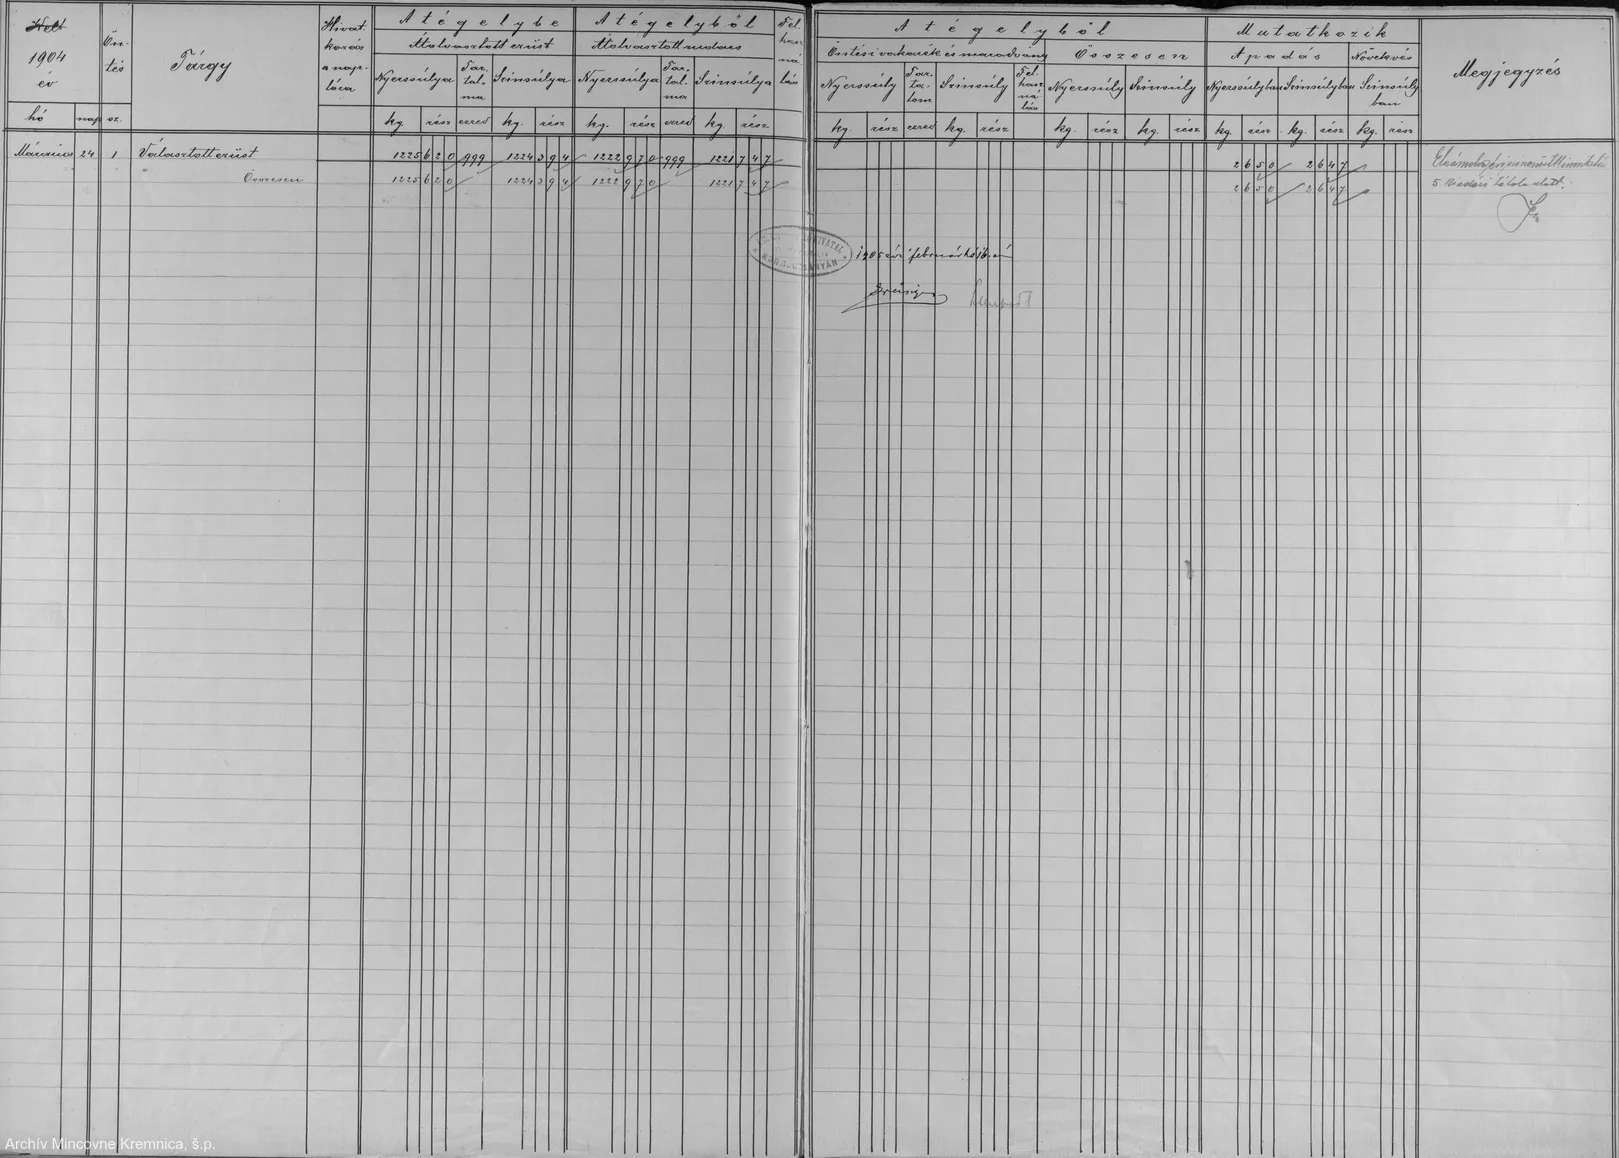 Kelt
1904
év
hó nap
Ön-
tés
sz.
Tárgy
Hivat-
kozás
a nap-
lóra
A tégelybe
Átolvasztott ezüst
Nyerssúlya Tar-
tal-
ma Színsúlya
kg. rész ezred kg. rész
A tégelyből
Átolvasztott rudacs
Nyerssúlya Tar-
tal-
ma Színsúlya
kg. rész ezred kg. rész
Fel
hasz
ná-
lás
A tégelyből
Öntési vakarék és maradvány Összesen
Nyerssúly Tar-
ta-
lom Színsúly Fel
hasz
ná-
lás Nyerssúly Színsúly
kg. rész ezred kg. rész kg. rész kg. rész
Mutatkozik
Apadás Növekvés
Nyerssúlyban Színsúlyban Színsúly
ban
kg. rész kg. rész kg. rész
Megjegyzés
Március 24 1 Választott ezüst 1225 620 999 1224 394 1222 970 999 1221 747 2 650 2 647
Összesen 1225 620 1224 394 1222 970 1221 747 2 650 2 647
5 kiadási tétele alatt.
1905 évi február hó 16.-án
Archív Mincovne Kremnica, š.p.